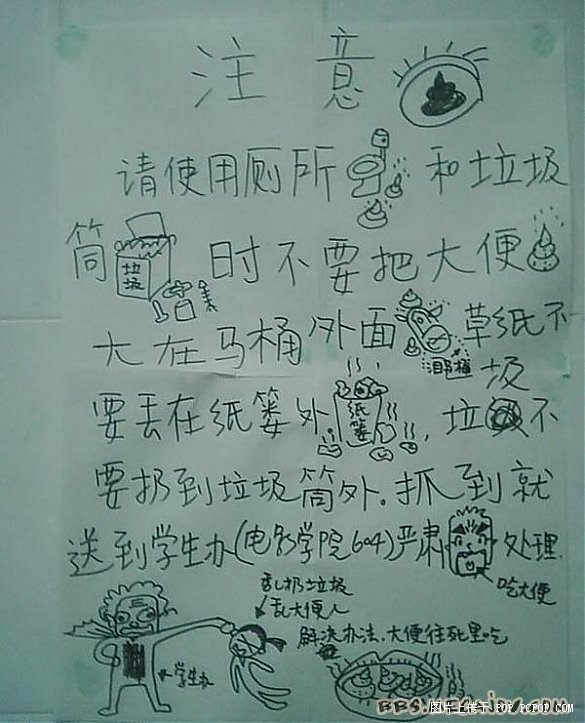 注意
请使用厕所和垃圾
筒垃圾时不要把大便
大在马桶外面草纸不
马桶
要丢在纸篓外纸篓,垃圾不
要扔到垃圾筒外。抓到就
送到学生办(电影学院604)严肃处理
吃大便
乱扔垃圾
乱大便人
解决办法、大便往死里吃
学生办
图片上传于 POP.PCPOP.COM